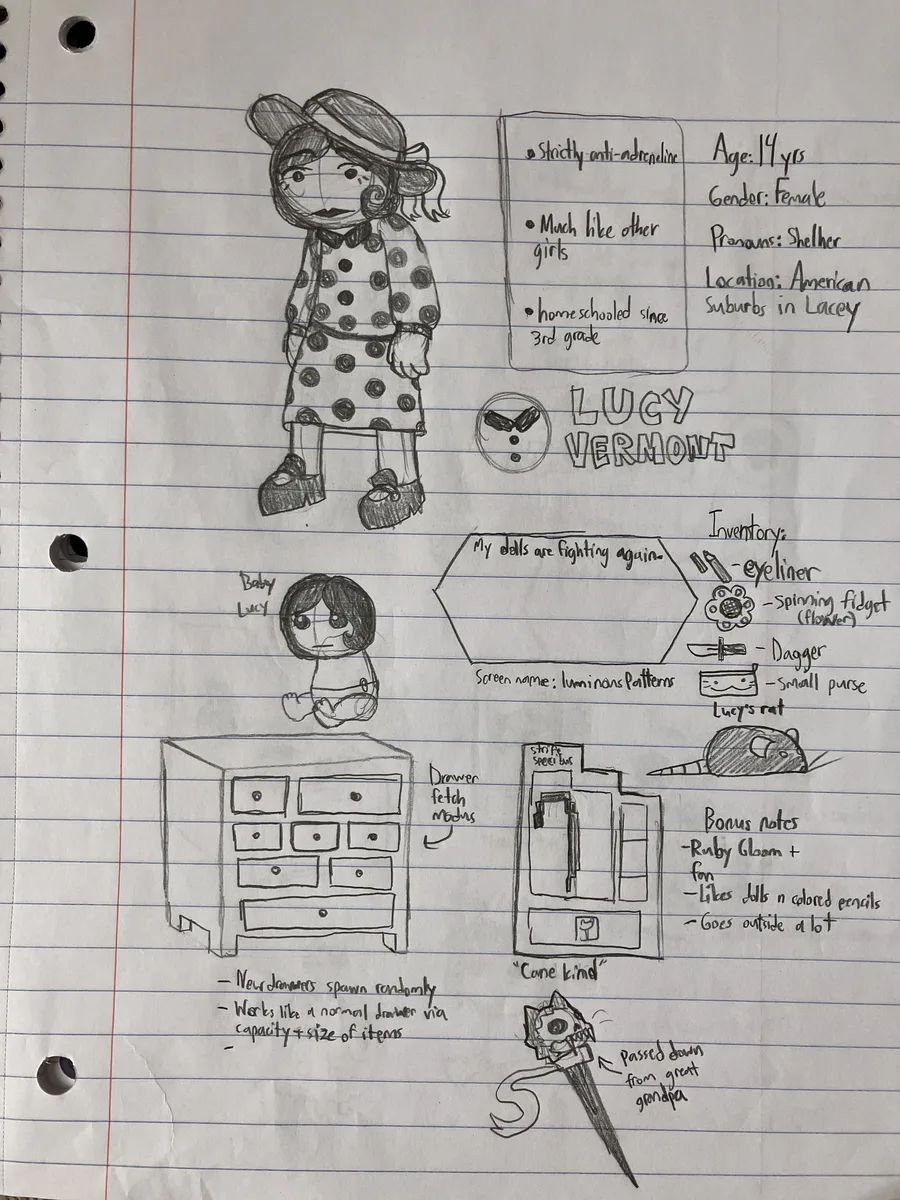 • Strictly anti-adreneline
• Much like other
girls
• homeschooled since
3rd grade
Age: 14 yrs
Gender: Female
Pronouns: She/her
Location: American
Suburbs in Lacey
LUCY
VERMONT
Baby
Lucy
My dolls are fighting again.
Screen name: luminousPatterns
Inventory:
- eyeliner
- spinning fidget
(flower)
- Dagger
- small purse
Lucy's rat
Drawer
fetch
modus
- New drawers spawn randomly
- Works like a normal drawer via
capacity + size of items
-
strife
specibus
"Cane kind"
Bonus notes
- Ruby Gloom +
fan
- Likes dolls n colored pencils
- Goes outside a lot
passed down
from great
grandpa